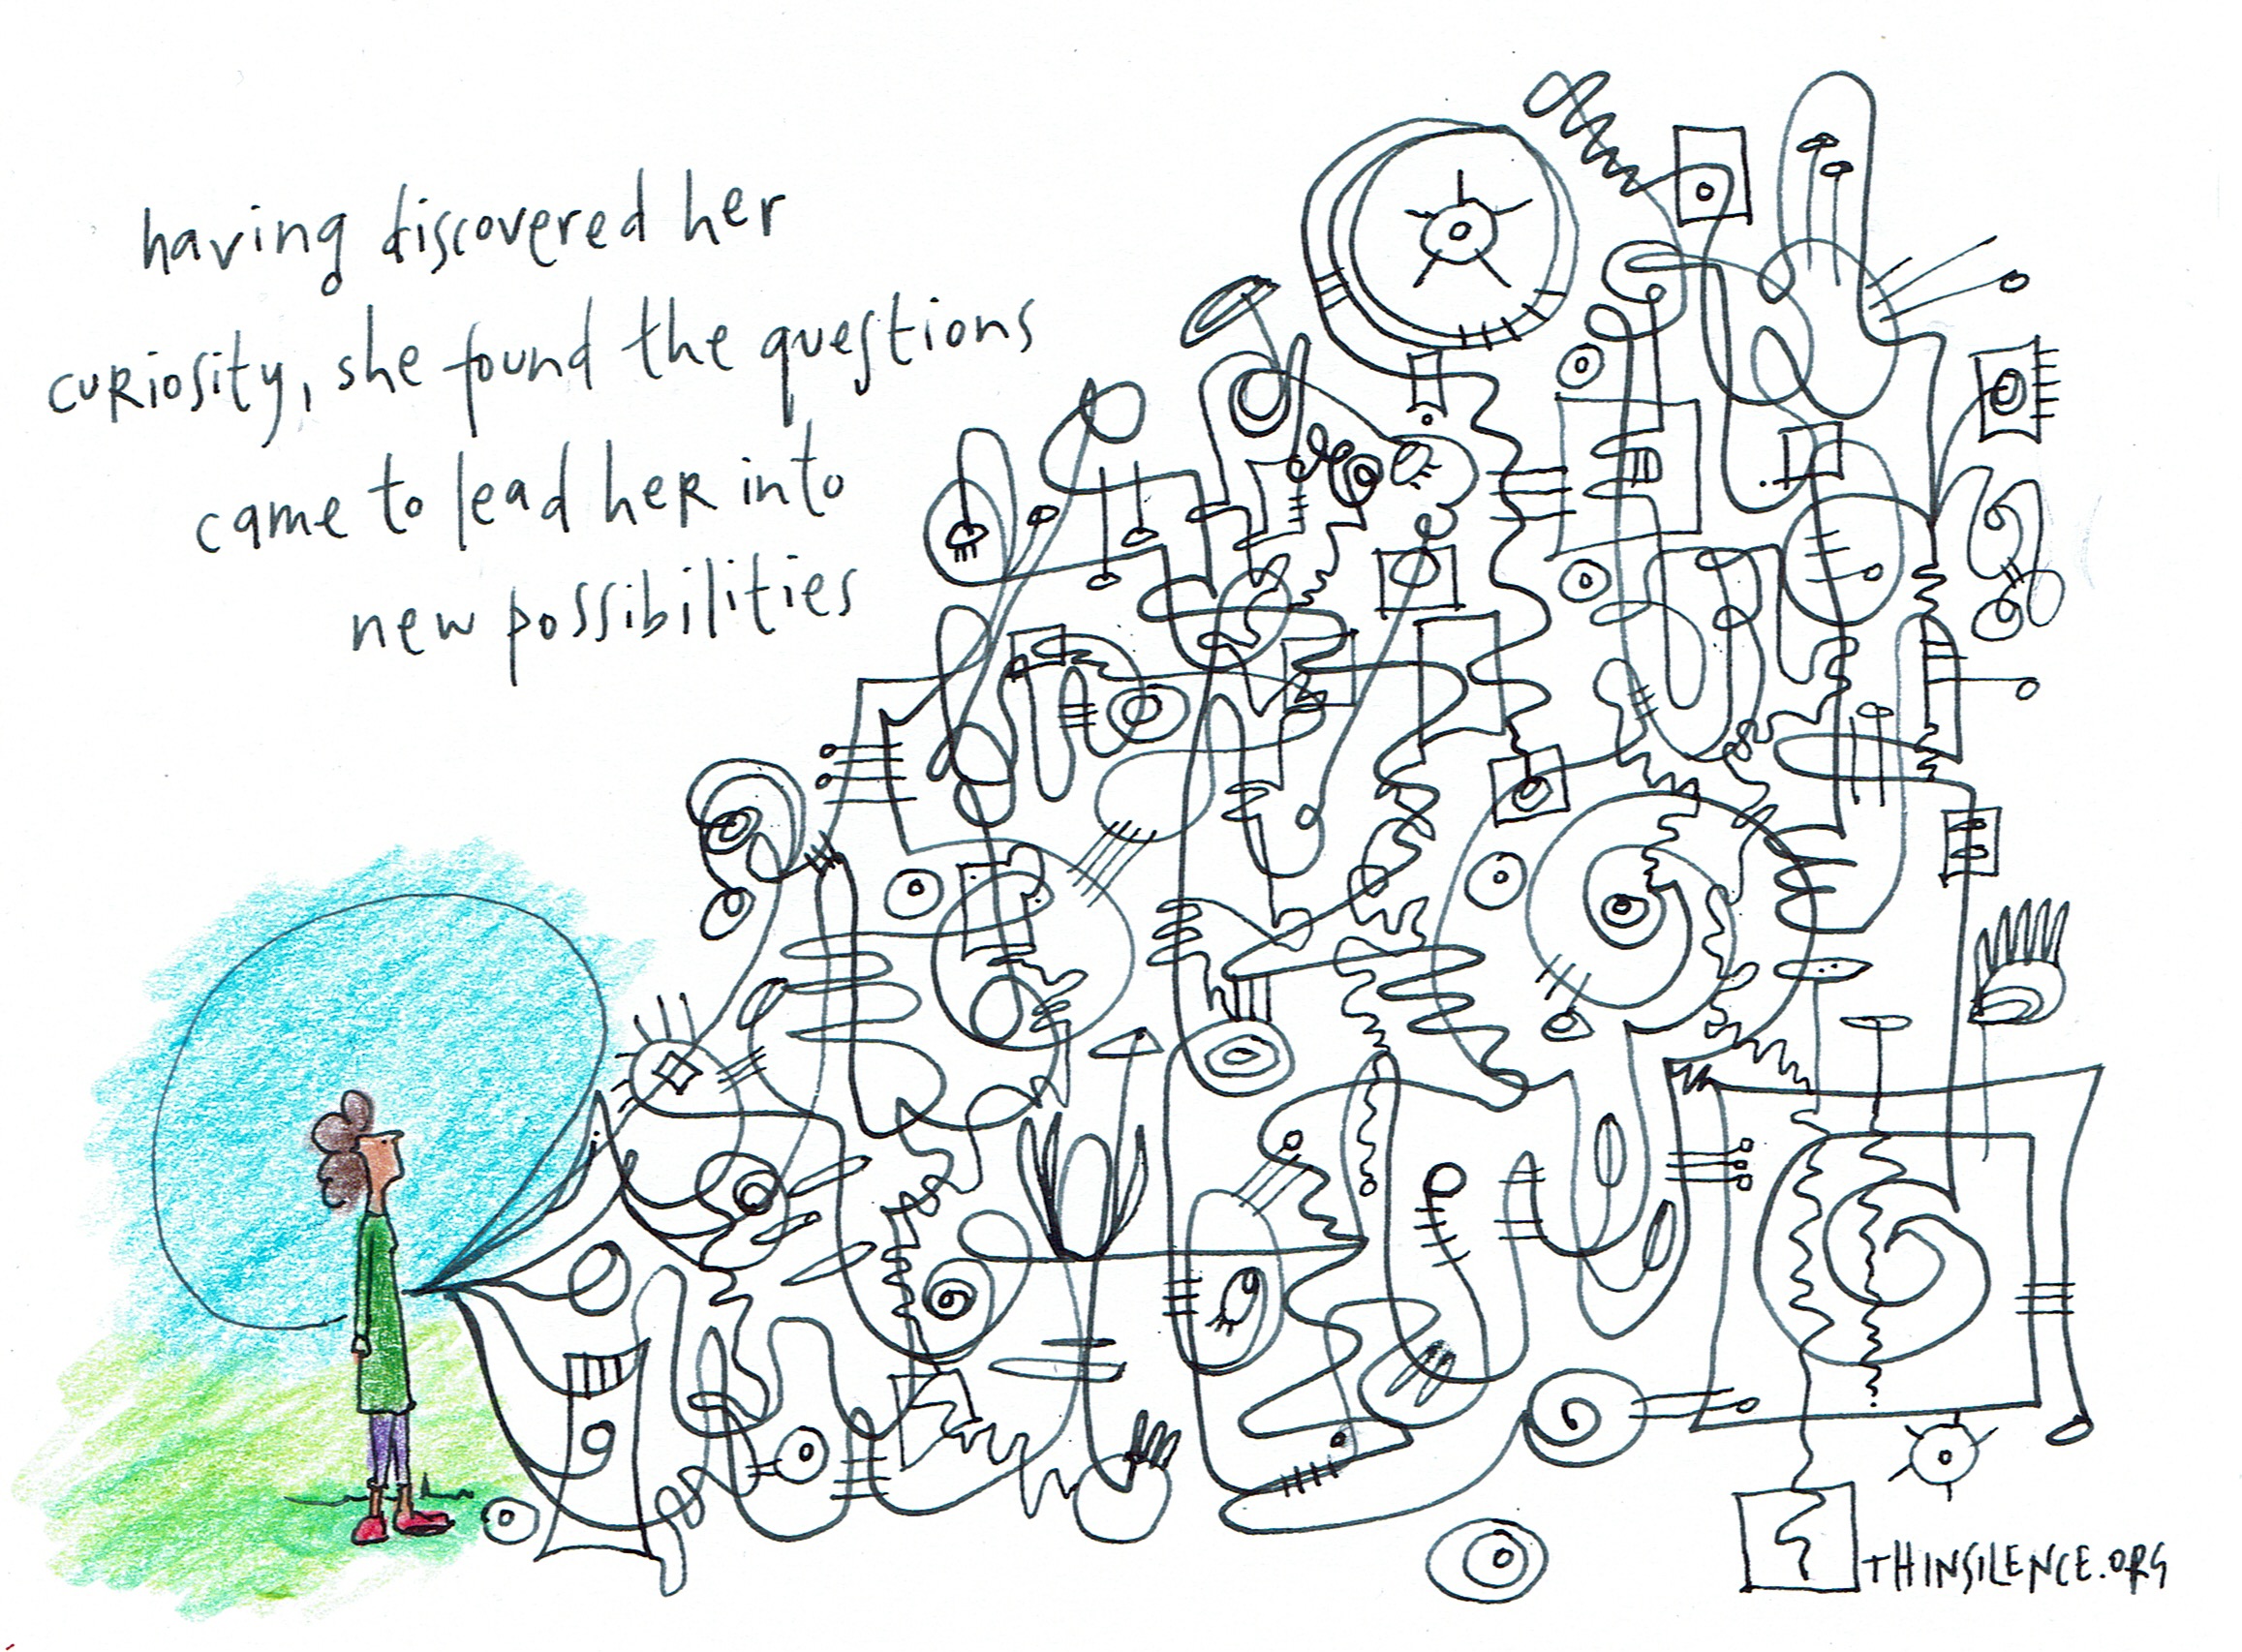 having discovered her
curiosity, she found the questions
came to lead her into
new possibilities
THINSILENCE.ORG